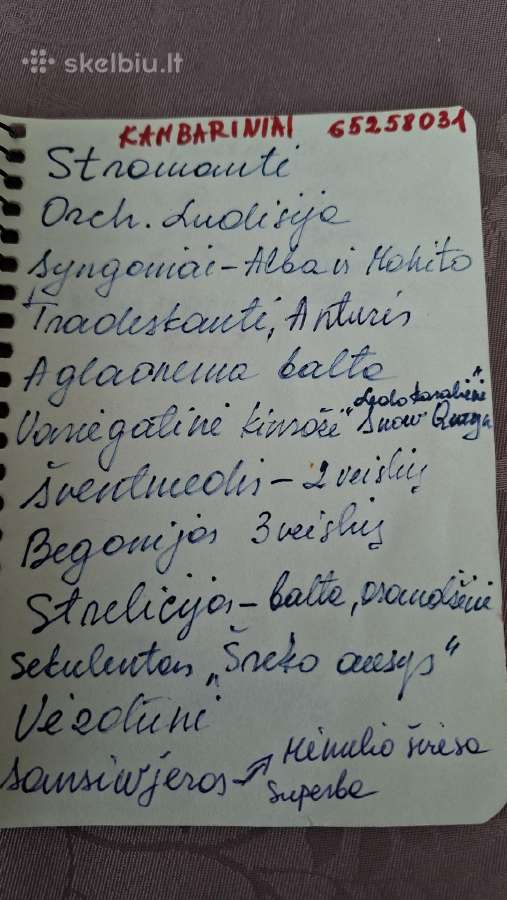 skelbiu.lt
KAMBARINIAI 65258031
Stromanti
Orch. Ludisija
Syngoniai - Alba ir Mohito
Tradeskanti, Anturis
Aglaonema balta
Variegatinė kinrožė "Ledo karalienė"
Snow Queen
Šventmedis - 2 veislių
Begonijos 3 veislių
Strelicijos - balta, oranžinė
Sekulentas „Šreko ausys"
Vėzdūnė
Sansivjeros - Mėnulio šviesa
Superba